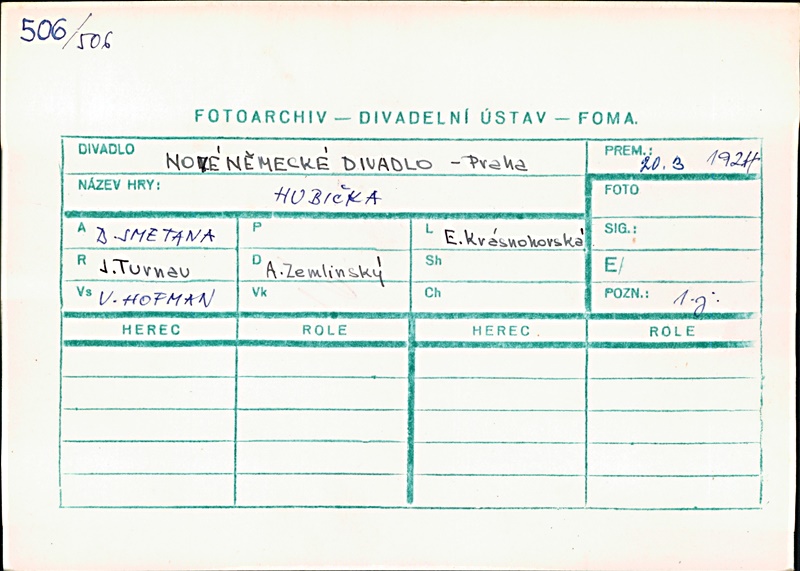 506/506
FOTOARCHIV — DIVADELNÍ ÚSTAV — FOMA.
DIVADLO NOVÉ NĚMECKÉ DIVADLO - Praha PREM.: 20.3 1924
NÁZEV HRY: HUBIČKA FOTO
A B SMETANA P L E. Krásnohorská SIG.:
R J. Turnau D A. Zemlinský Sh E/
Vs V. HOFMAN Vk Ch POZN.: 1.j.
HEREC ROLE HEREC ROLE